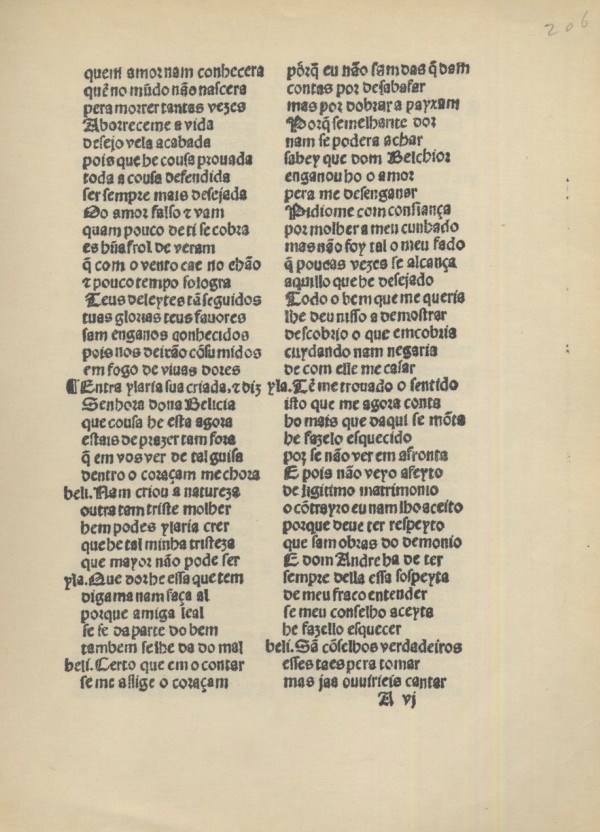 206
quem amor nam conhecera
quẽ no mũdo não nascera
pera morrer tantas vezes
Aborreceme a vida
desejo vela acabada
pois que he cousa prouada
toda a cousa defendida
ser sempre mais desejada
Oo amor falso ⁊ vam
quam pouco de ti se cobra
es hũa frol de veram
q̃ com o vento cae no chão
⁊ pouco tempo so logra
Teus deleytes tã seguidos
tuas glorias teus fauores
sam enganos conhecidos
pois nos deixão cõsumidos
em fogo de viuas dores
¶ Entra ylaria sua criada, ⁊ diz
Senhora dona Belicia
que cousa he esta agora
estais de prazer tam fora
q̃ em vos ver de tal guisa
dentro o coraçam me chora
beli. Nam criou a natureza
outra tam triste molher
bem podes ylaria crer
que he tal minha tristeza
que mayor não pode ser
yla. Que dor he essa que tem
diga ma nam faça al
porque amiga leal
se fe da parte do bem
tambem se lhe da do mal
beli. Certo que em o contar
se me aflige o coraçam
pórq̃ eu não sam das q̃ dam
contas por desabafar
mas por dobrar a payxam
Porq̃ semelhante dor
nam se podera achar
sabey que dom Belchior
enganou ho o amor
pera me desenganar
Pidiome com confiança
por molher a meu cunhado
mas não foy tal o meu fado
q̃ poucas vezes se alcança
aquillo que he desejado
Todo o bem que me queria
lhe deu nisso a demostrar
descobrio o que emcobria
cuydando nam negaria
de com elle me casar
yla. Tẽ me trouado o sentido
isto que me agora conta
ho mais que daqui se mõta
he fazelo esquecido
por se não ver em afronta
E pois não veyo afeyto
de ligitimo matrimonio
o cõtrayro eu nam lho aceito
porque deue ter respeyto
que sam obras do demonio
E dom Andre ha de ter
sempre della essa sospeyta
de meu fraco entender
se meu conselho aceyta
he fazello esquecer
beli. Sã cõselhos verdadeiros
esses taes pera tomar
mas jaa ouuirieis cantar
A vj